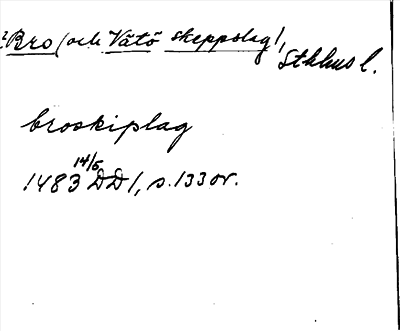 2 Bro (och Vätö skeppslag),
Sthlms l.
broskiplag
14/5
1483 DD1, s. 133 or.